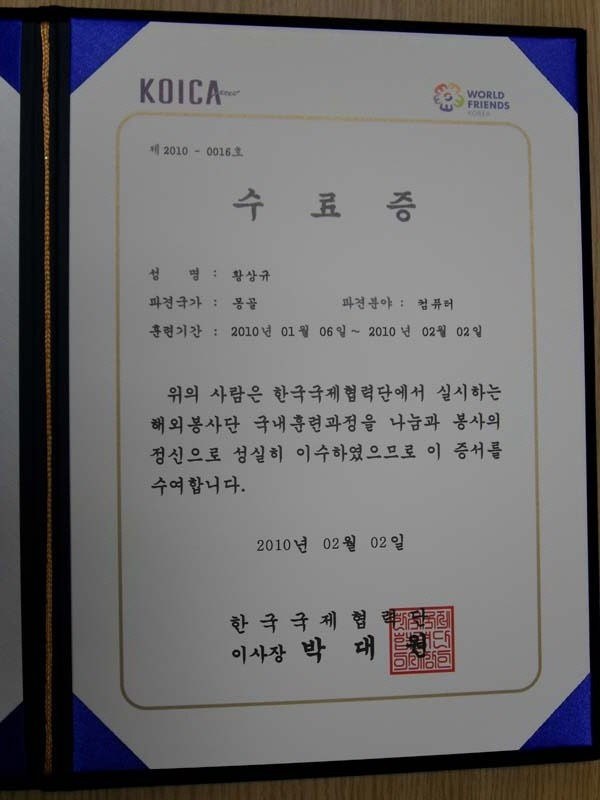 KOICA
WORLD
FRIENDS
KOREA
제 2010 - 0016호
수 료 증
성 명 : 황상규
파견국가 : 몽골 파견분야 : 컴퓨터
훈련기간 : 2010년 01월 06일 ~ 2010년 02월 02일
위의 사람은 한국국제협력단에서 실시하는
해외봉사단 국내훈련과정을 나눔과 봉사의
정신으로 성실히 이수하였으므로 이 증서를
수여합니다.
2010년 02월 02일
한국국제협력단
이사장 박 대 원